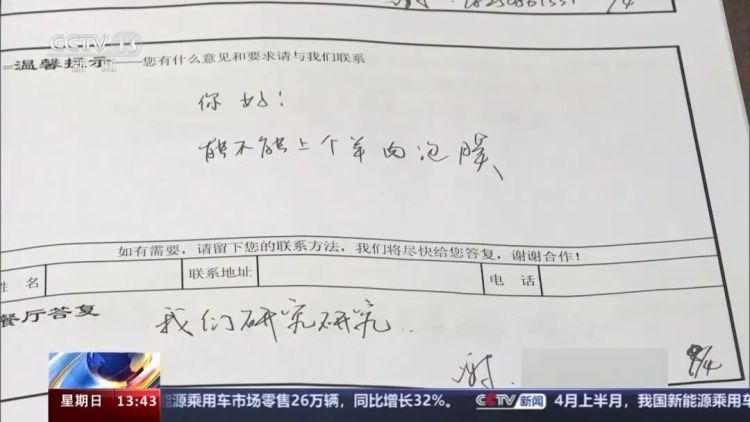 CCTV 13
新闻
温馨提示——您有什么意见和要求请与我们联系
你好！
能不能上个羊肉泡膜
如有需要，请留下您的联系方法，我们将尽快给您答复，谢谢合作！
姓名
联系地址
电话
餐厅答复
我们研究研究..
谢
9/4
星期日 13:43
能源乘用车市场零售26万辆，同比增长32%。 CCTV 新闻 4月上半月，我国新能源乘用车